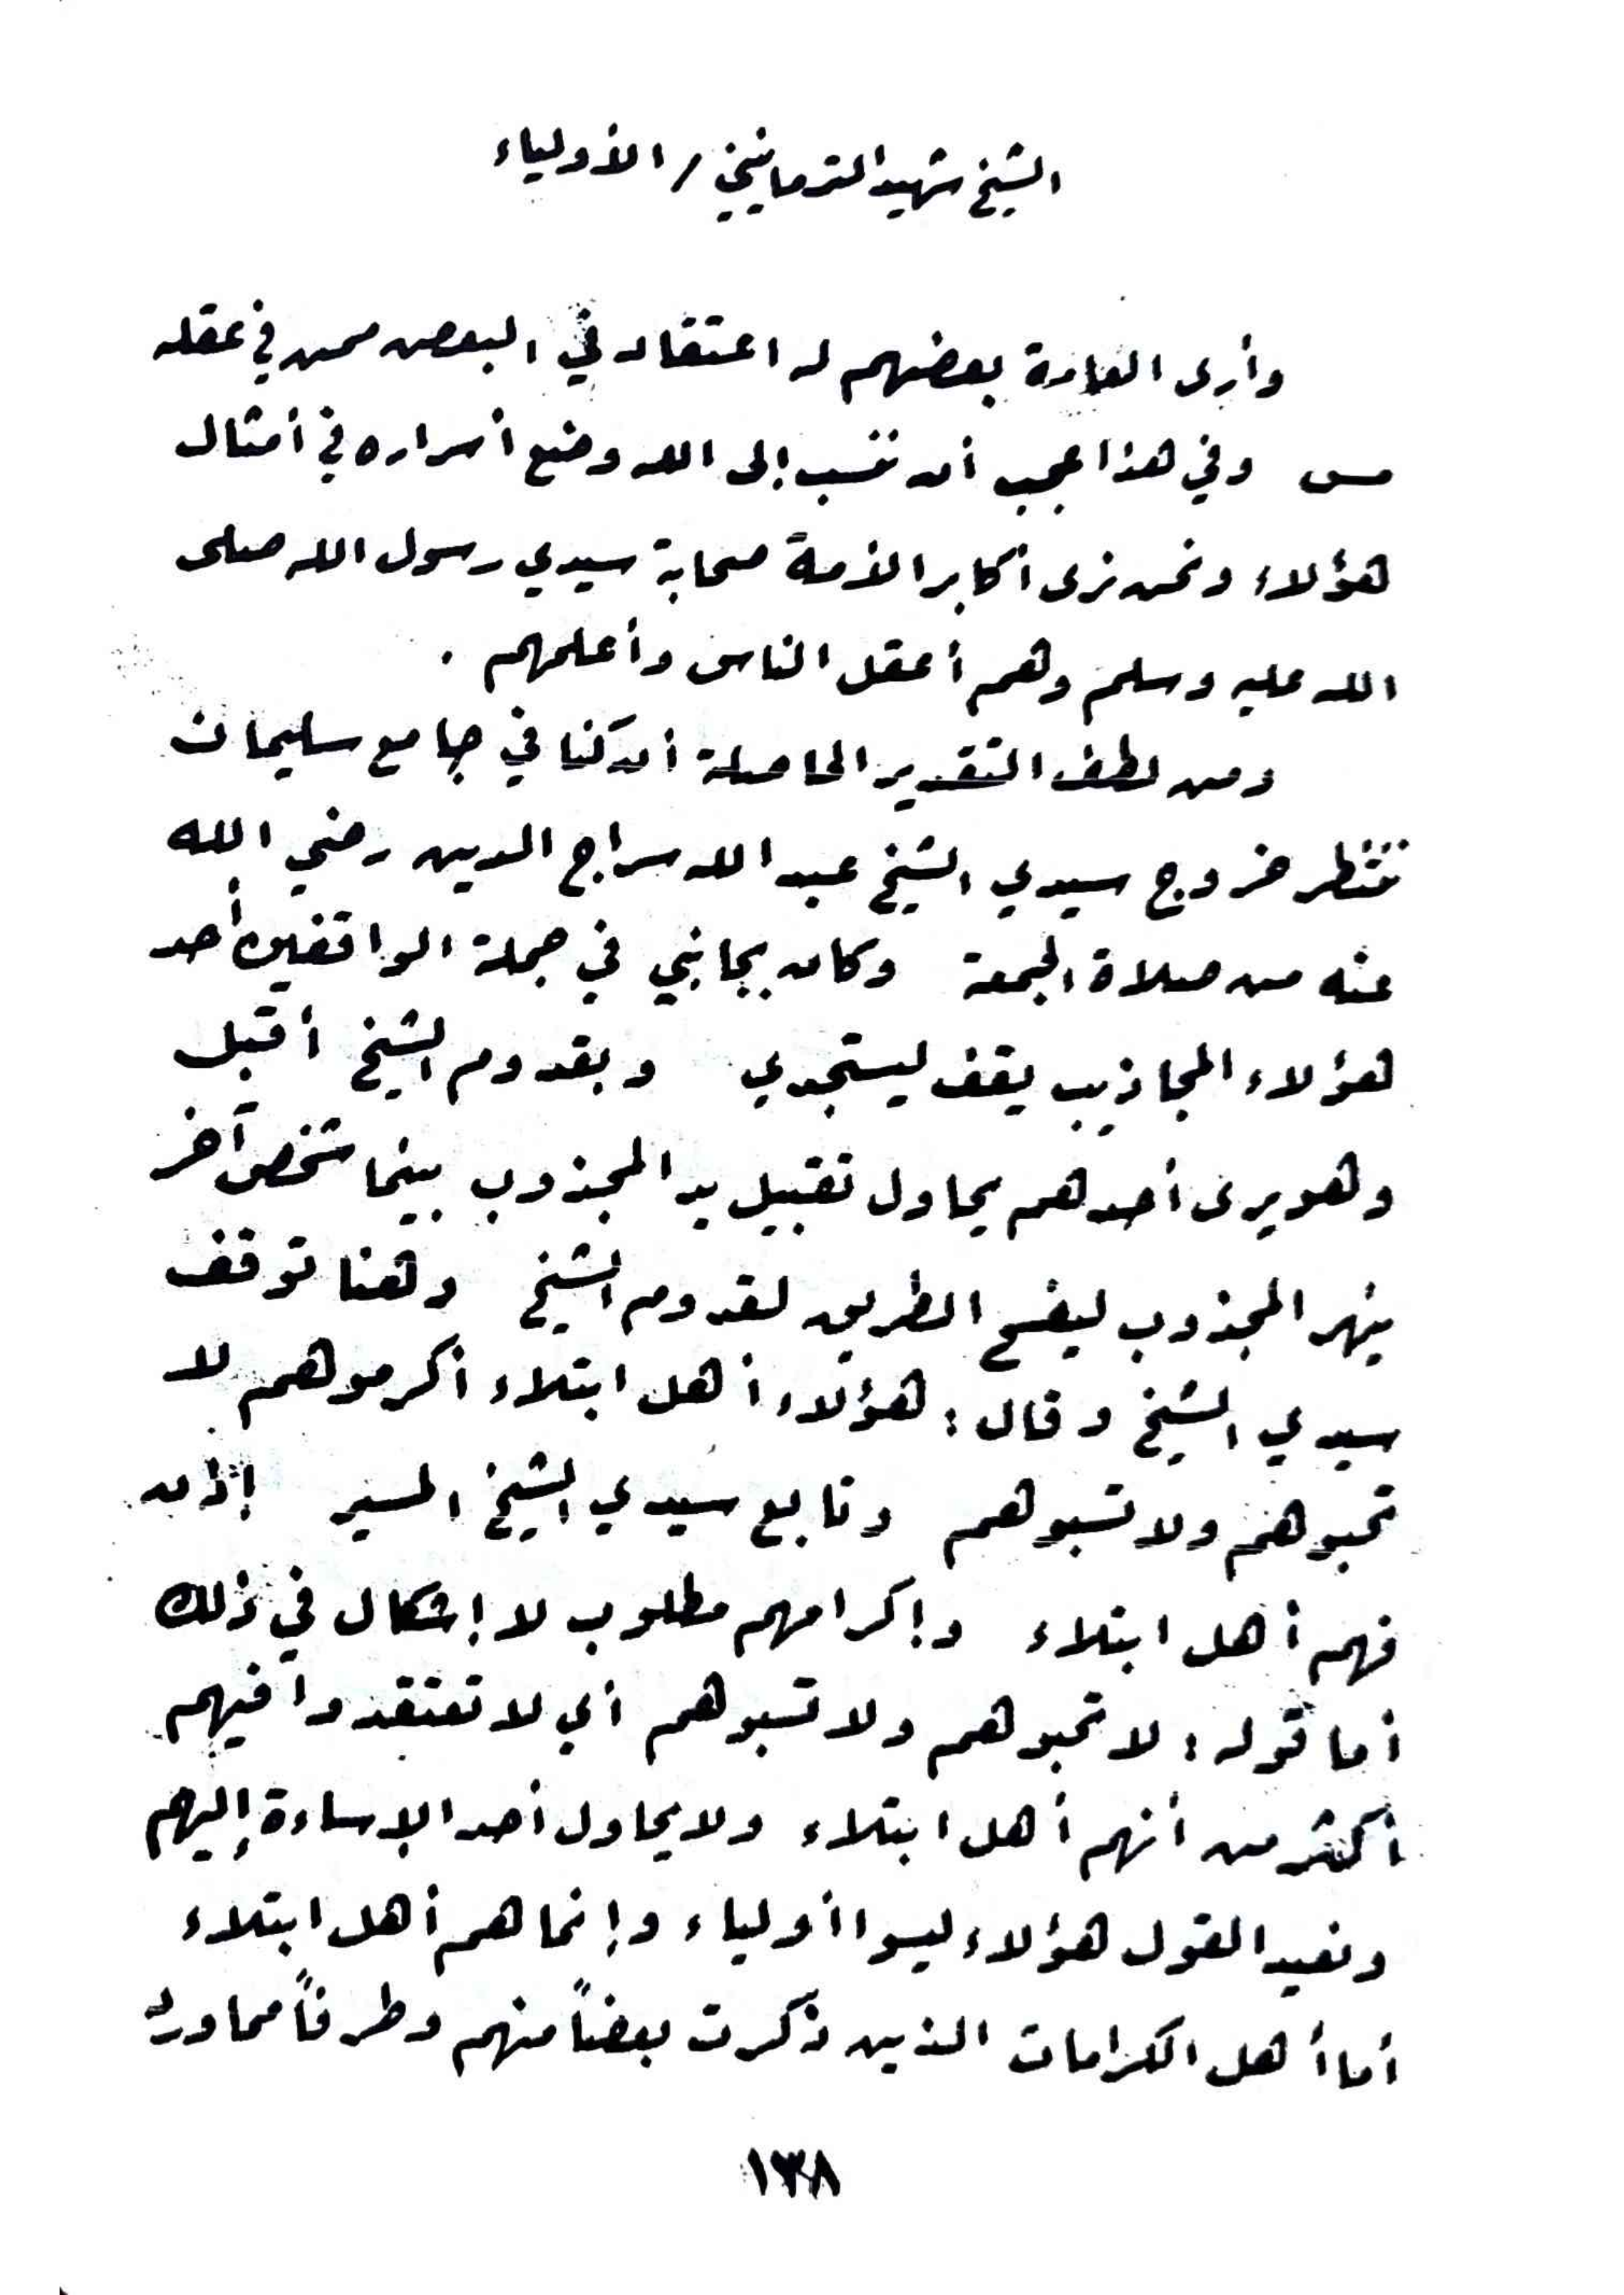 الشيخ شهيد الترمانيني / الأولياء
وأرى العادة بعضهم له اعتقاد في البعض ممن في عقله
مس وفي هذا عجب أن ننسب إلى الله وضع أسراره في أمثال
هؤلاء ونحن نرى أكابر الأمة صحابة سيدي رسول الله صلى
الله عليه وسلم وهم أعقل الناس وأعلمهم .
ومن لطف التقدير الحاصلة أن كنا في جامع سليمان
ننتظر خروج سيدي الشيخ عبد الله سراج الدين رضي الله
عنه من صلاة الجمعة وكان بجانبي في جملة الواقفين أحد
هؤلاء المجاذيب يقف ليستجدي وبقدوم الشيخ أقبل
وهو يرى أحدهم يحاول تقبيل يد المجذوب بينما شخص آخر
ينهر المجذوب ليفسح الطريق لقدوم الشيخ وهنا توقف
سيدي الشيخ وقال : هؤلاء أهل ابتلاء أكرموهم لا
تحبوهم ولا تسبوهم وتابع سيدي الشيخ المسير إذن
فهم أهل ابتلاء وإكرامهم مطلوب لا إشكال في ذلك
أما قوله : لا تحبوهم ولا تسبوهم أي لا تعتقدوا فيهم
أكثر من أنهم أهل ابتلاء ولا يحاول أحد الإساءة إليهم
ونعيد القول هؤلاء ليسوا أولياء وإنما هم أهل ابتلاء
أما أهل الكرامات الذين ذكرت بعضاً منهم وطرفاً مما ورد
١٣٨